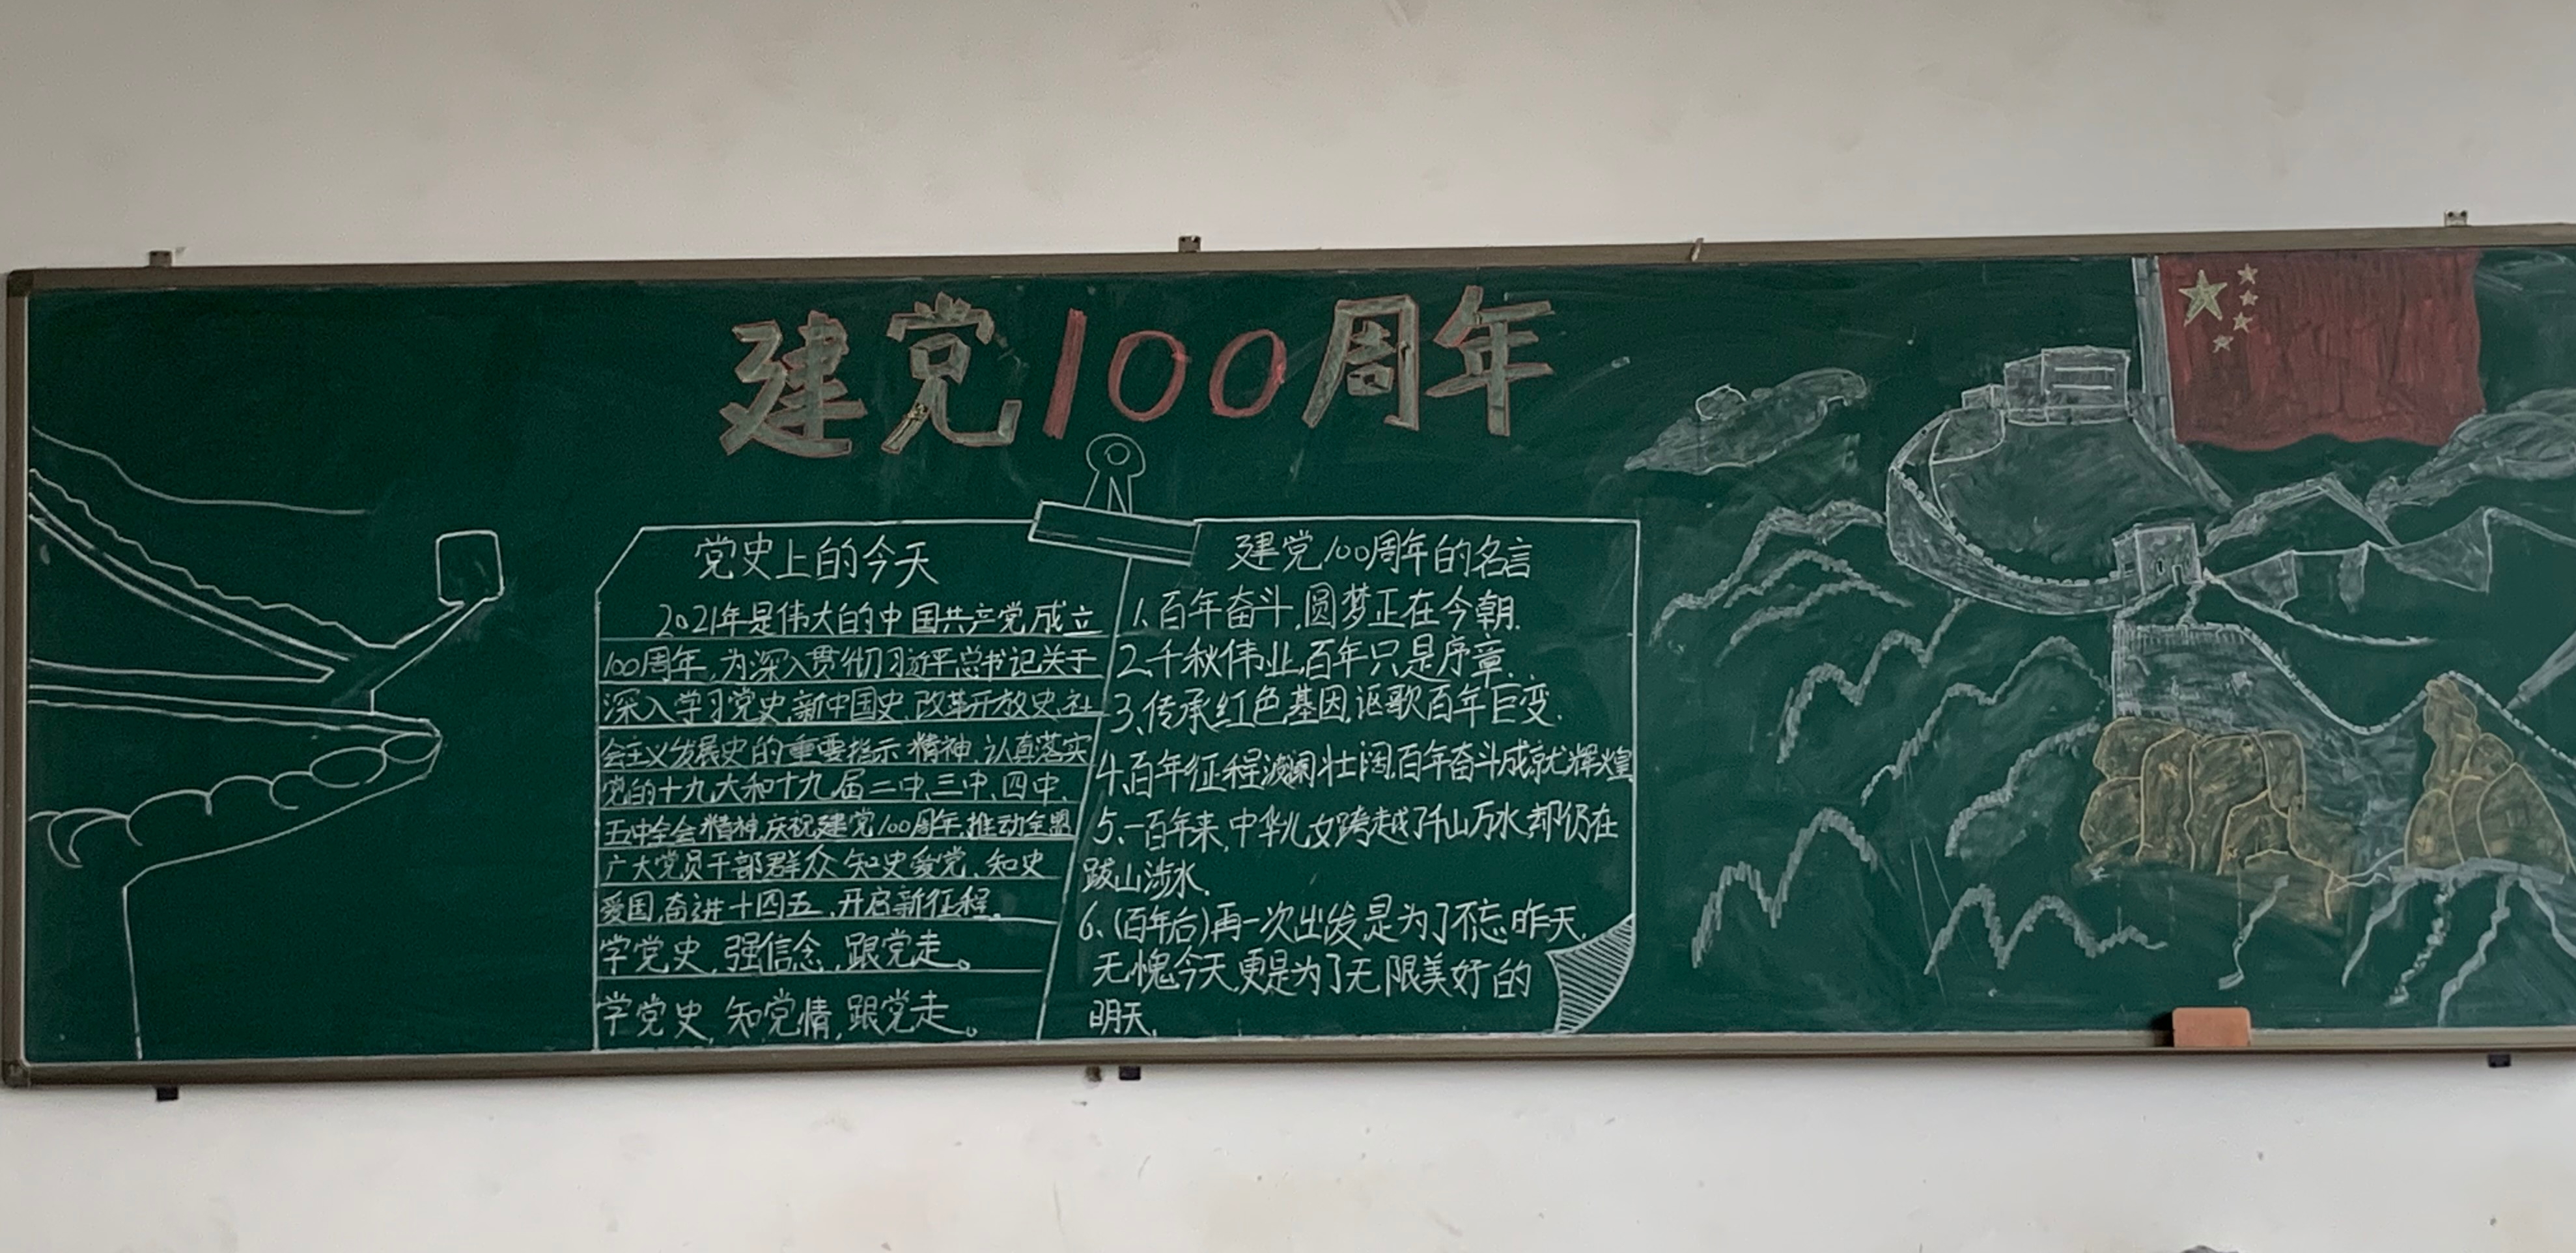 建党100周年
党史上的今天
2021年是伟大的中国共产党成立
100周年,为深入贯彻习近平总书记关于
深入学习党史,新中国史,改革开放史,社
会主义发展史的重要指示精神,认真落实
党的十九大和十九届二中、三中、四中、
五中全会精神,庆祝建党100周年,推动全盟
广大党员干部群众知史爱党、知史
爱国,奋进十四五,开启新征程。
学党史,强信念,跟党走。
学党史,知党情,跟党走。
建党100周年的名言
1、百年奋斗,圆梦正在今朝.
2、千秋伟业,百年只是序章.
3、传承红色基因,讴歌百年巨变.
4、百年征程波澜壮阔,百年奋斗成就辉煌
5、一百年来,中华儿女跨越了千山万水都仍在
跋山涉水.
6、(百年后)再一次出发,是为了不忘昨天,
无愧今天,更是为了无限美好的
明天.